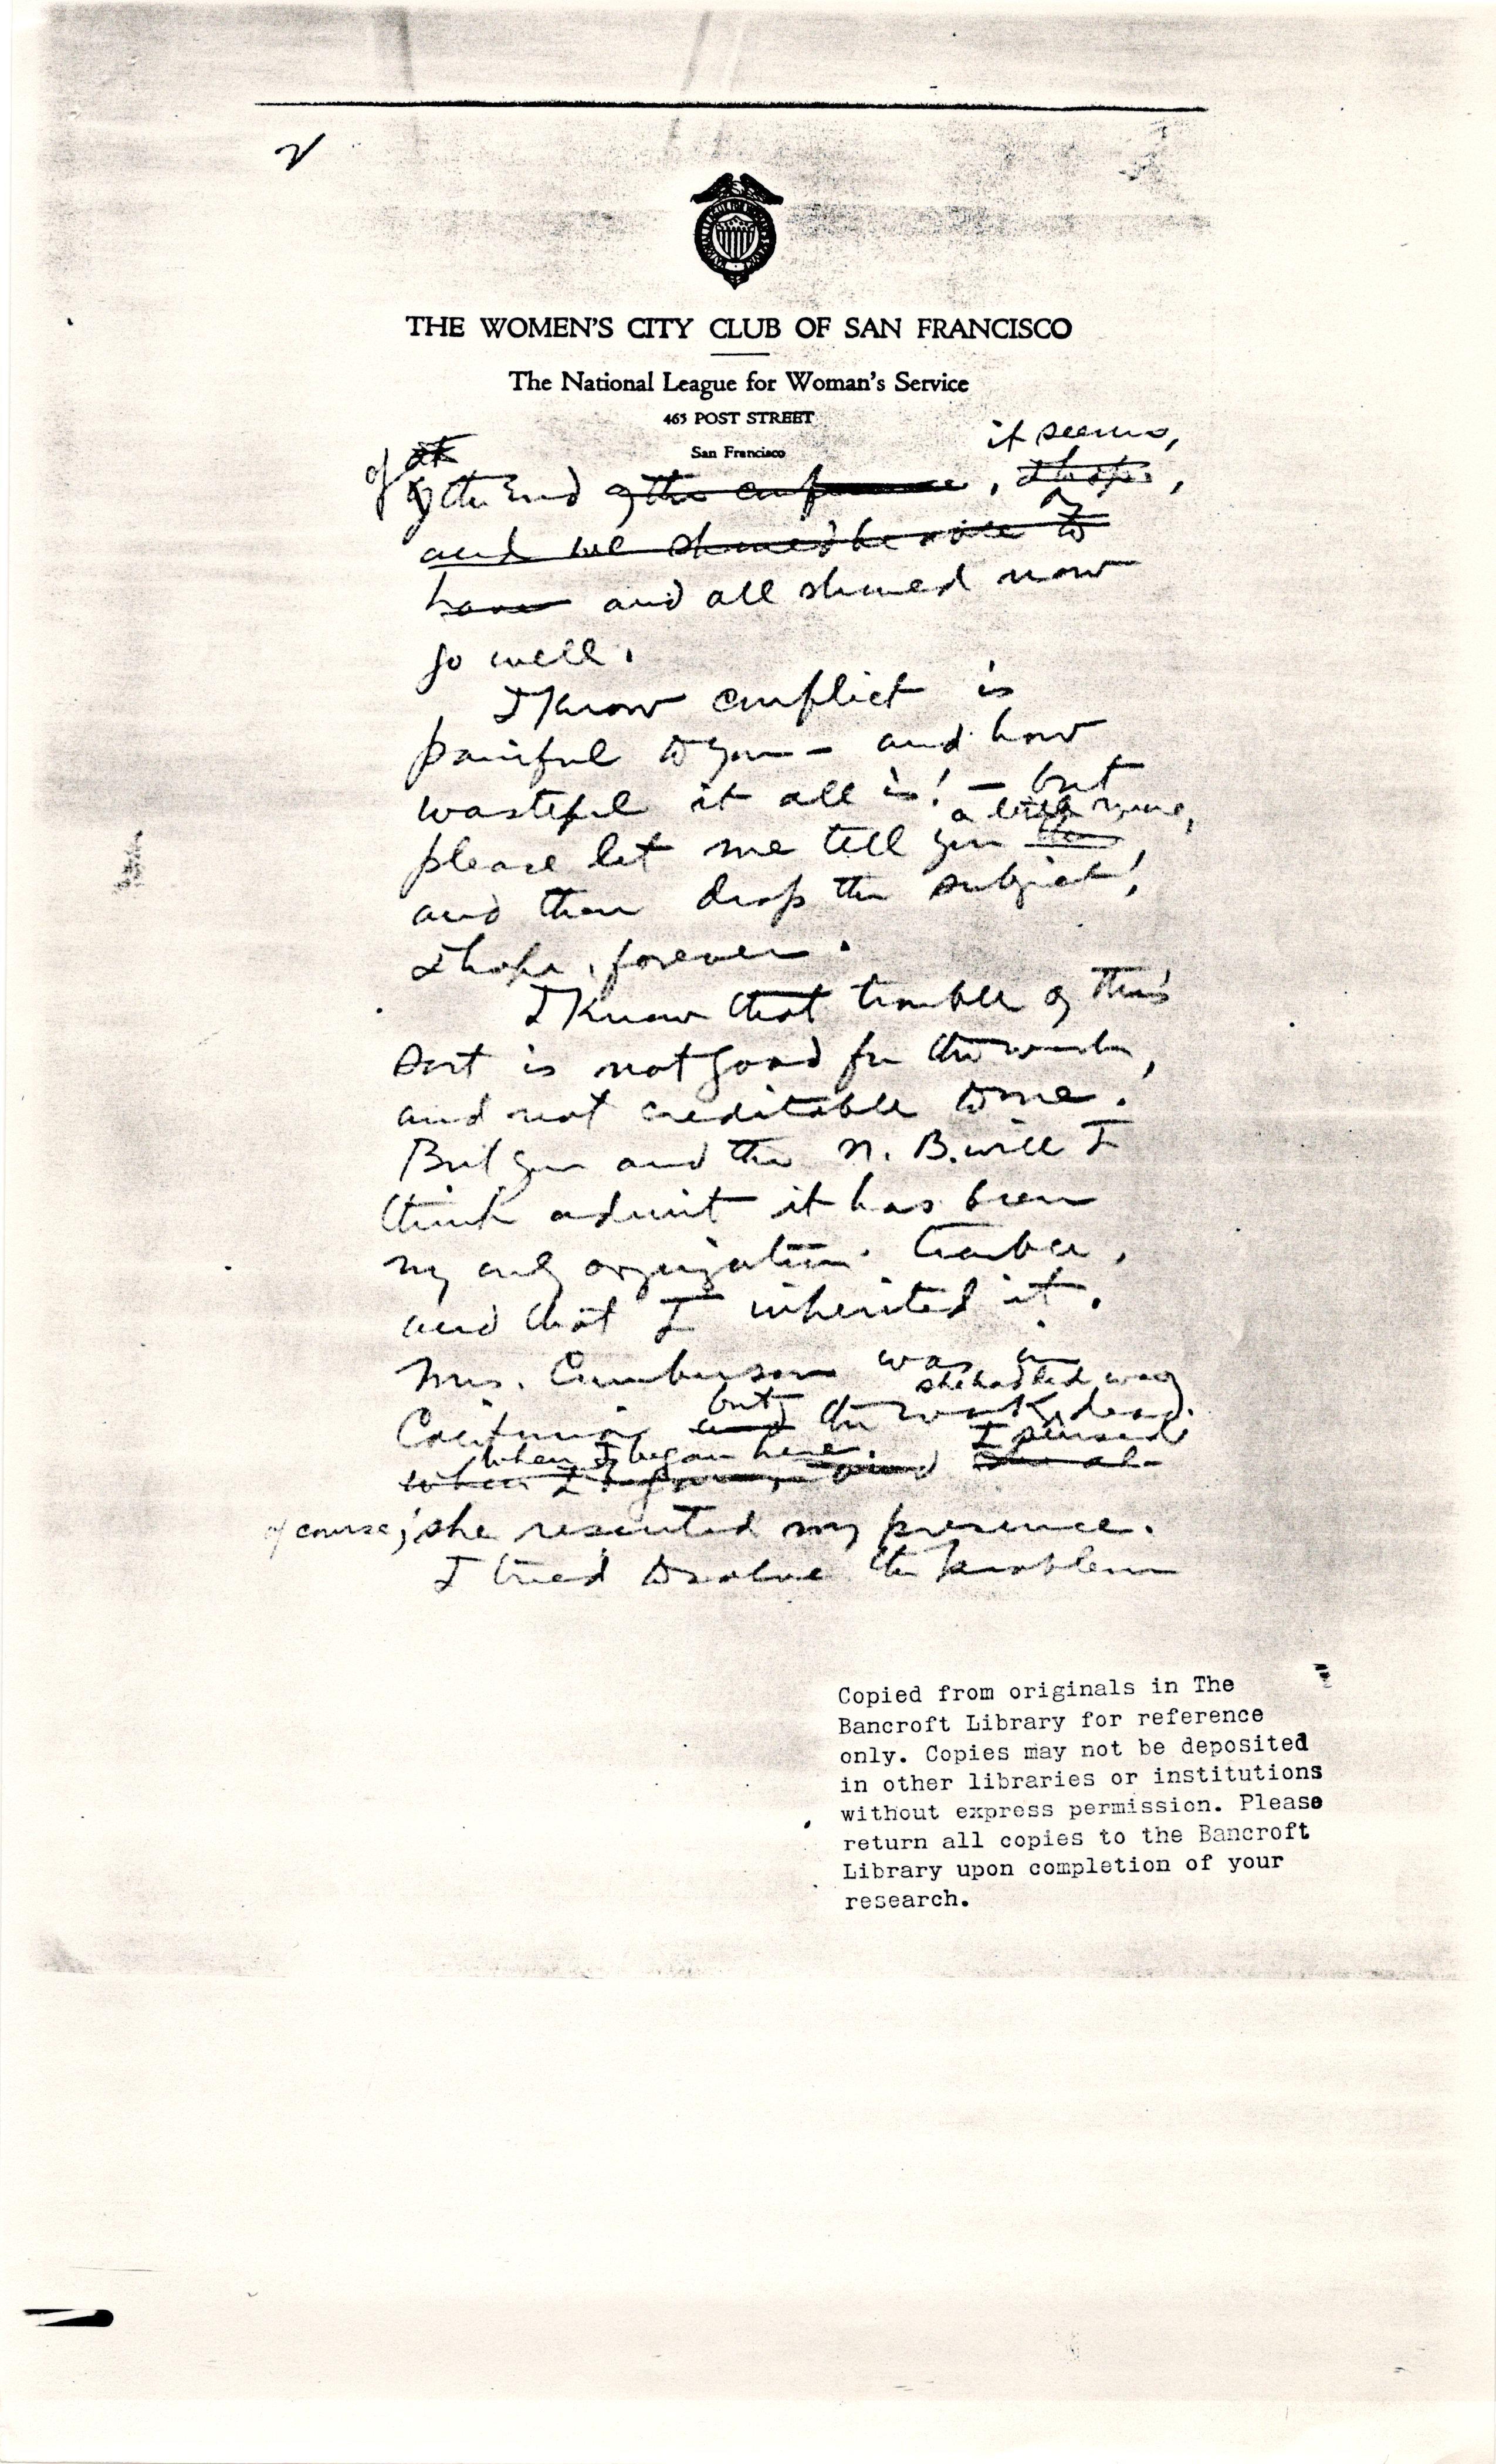 2
THE WOMEN'S CITY CLUB OF SAN FRANCISCO
The National League for Woman's Service
465 POST STREET
San Francisco
it seems,
of at
the End of the conference, I hope,
and we should be able to
have and all should now
go well.
I know conflict is
painful to you – and how
wasteful it all is! – but
a little more,
please let me tell you
and then drop the subject!
I hope, forever.
I know that trouble of this
sort is not good for the work,
and not creditable to me.
But you and the N. B. will I
think admit it has been
my only organization trouble,
and that I inherited it.
Mrs. Cumberson was in
she had led was
California and but the work dead.
when I began here. I
when I began and
of course; she resented my presence.
I tried to solve the problem
Copied from originals in The
Bancroft Library for reference
only. Copies may not be deposited
in other libraries or institutions
without express permission. Please
return all copies to the Bancroft
Library upon completion of your
research.